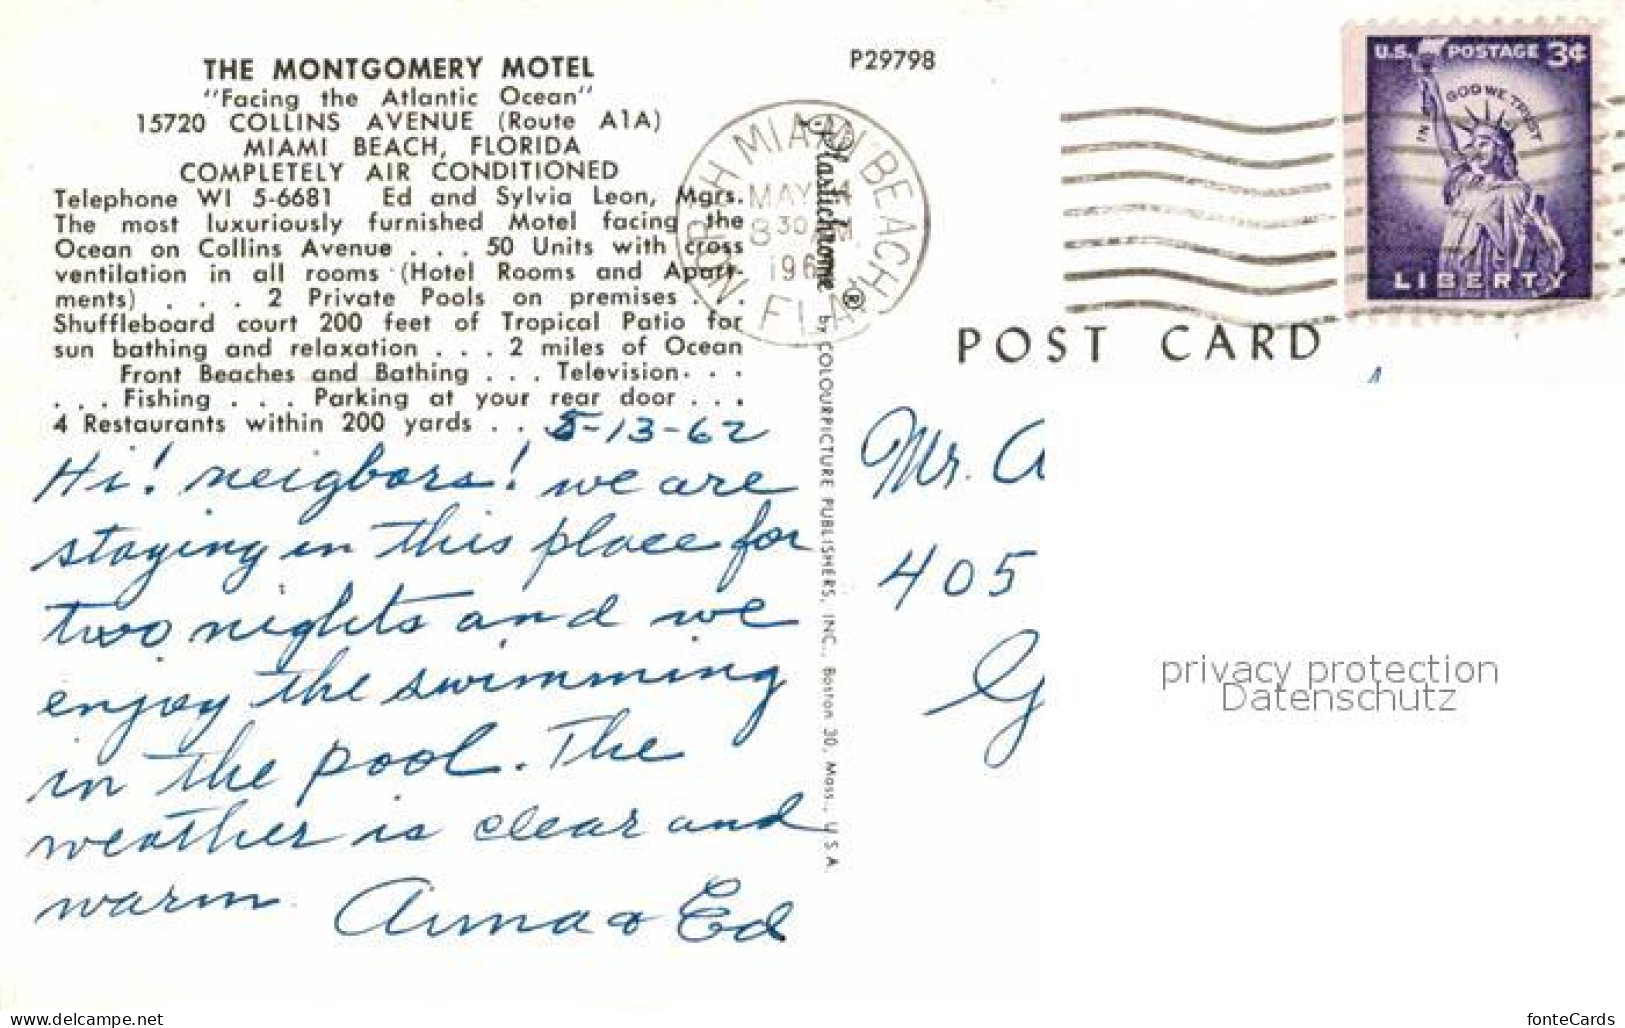 THE MONTGOMERY MOTEL
"Facing the Atlantic Ocean"
15720 COLLINS AVENUE (Route A1A)
MIAMI BEACH, FLORIDA
COMPLETELY AIR CONDITIONED
Telephone WI 5-6681 Ed and Sylvia Leon, Mgrs.
The most luxuriously furnished Motel facing the
Ocean on Collins Avenue . . . 50 Units with cross
ventilation in all rooms (Hotel Rooms and Apart-
ments) . . . 2 Private Pools on premises . . .
Shuffleboard court 200 feet of Tropical Patio for
sun bathing and relaxation . . . 2 miles of Ocean
Front Beaches and Bathing . . . Television . . .
. . . Fishing . . . Parking at your rear door . . .
4 Restaurants within 200 yards . . .
5-13-62
Hi! neigbors! we are
staying in this place for
two nights and we
enjoy the swimming
in the pool. The
weather is clear and
warm.
Anna & Ed
P29798
NORTH MIAMI BEACH
MAY
8 30
196
FLA
Plastichrome ® by COLOURPICTURE PUBLISHERS, INC., Boston 30, Mass., U.S.A.
U.S. POSTAGE 3¢
IN GOD WE TRUST
LIBERTY
POST CARD
Mr. A
405
G
privacy protection
Datenschutz
www.delcampe.net
fonteCards